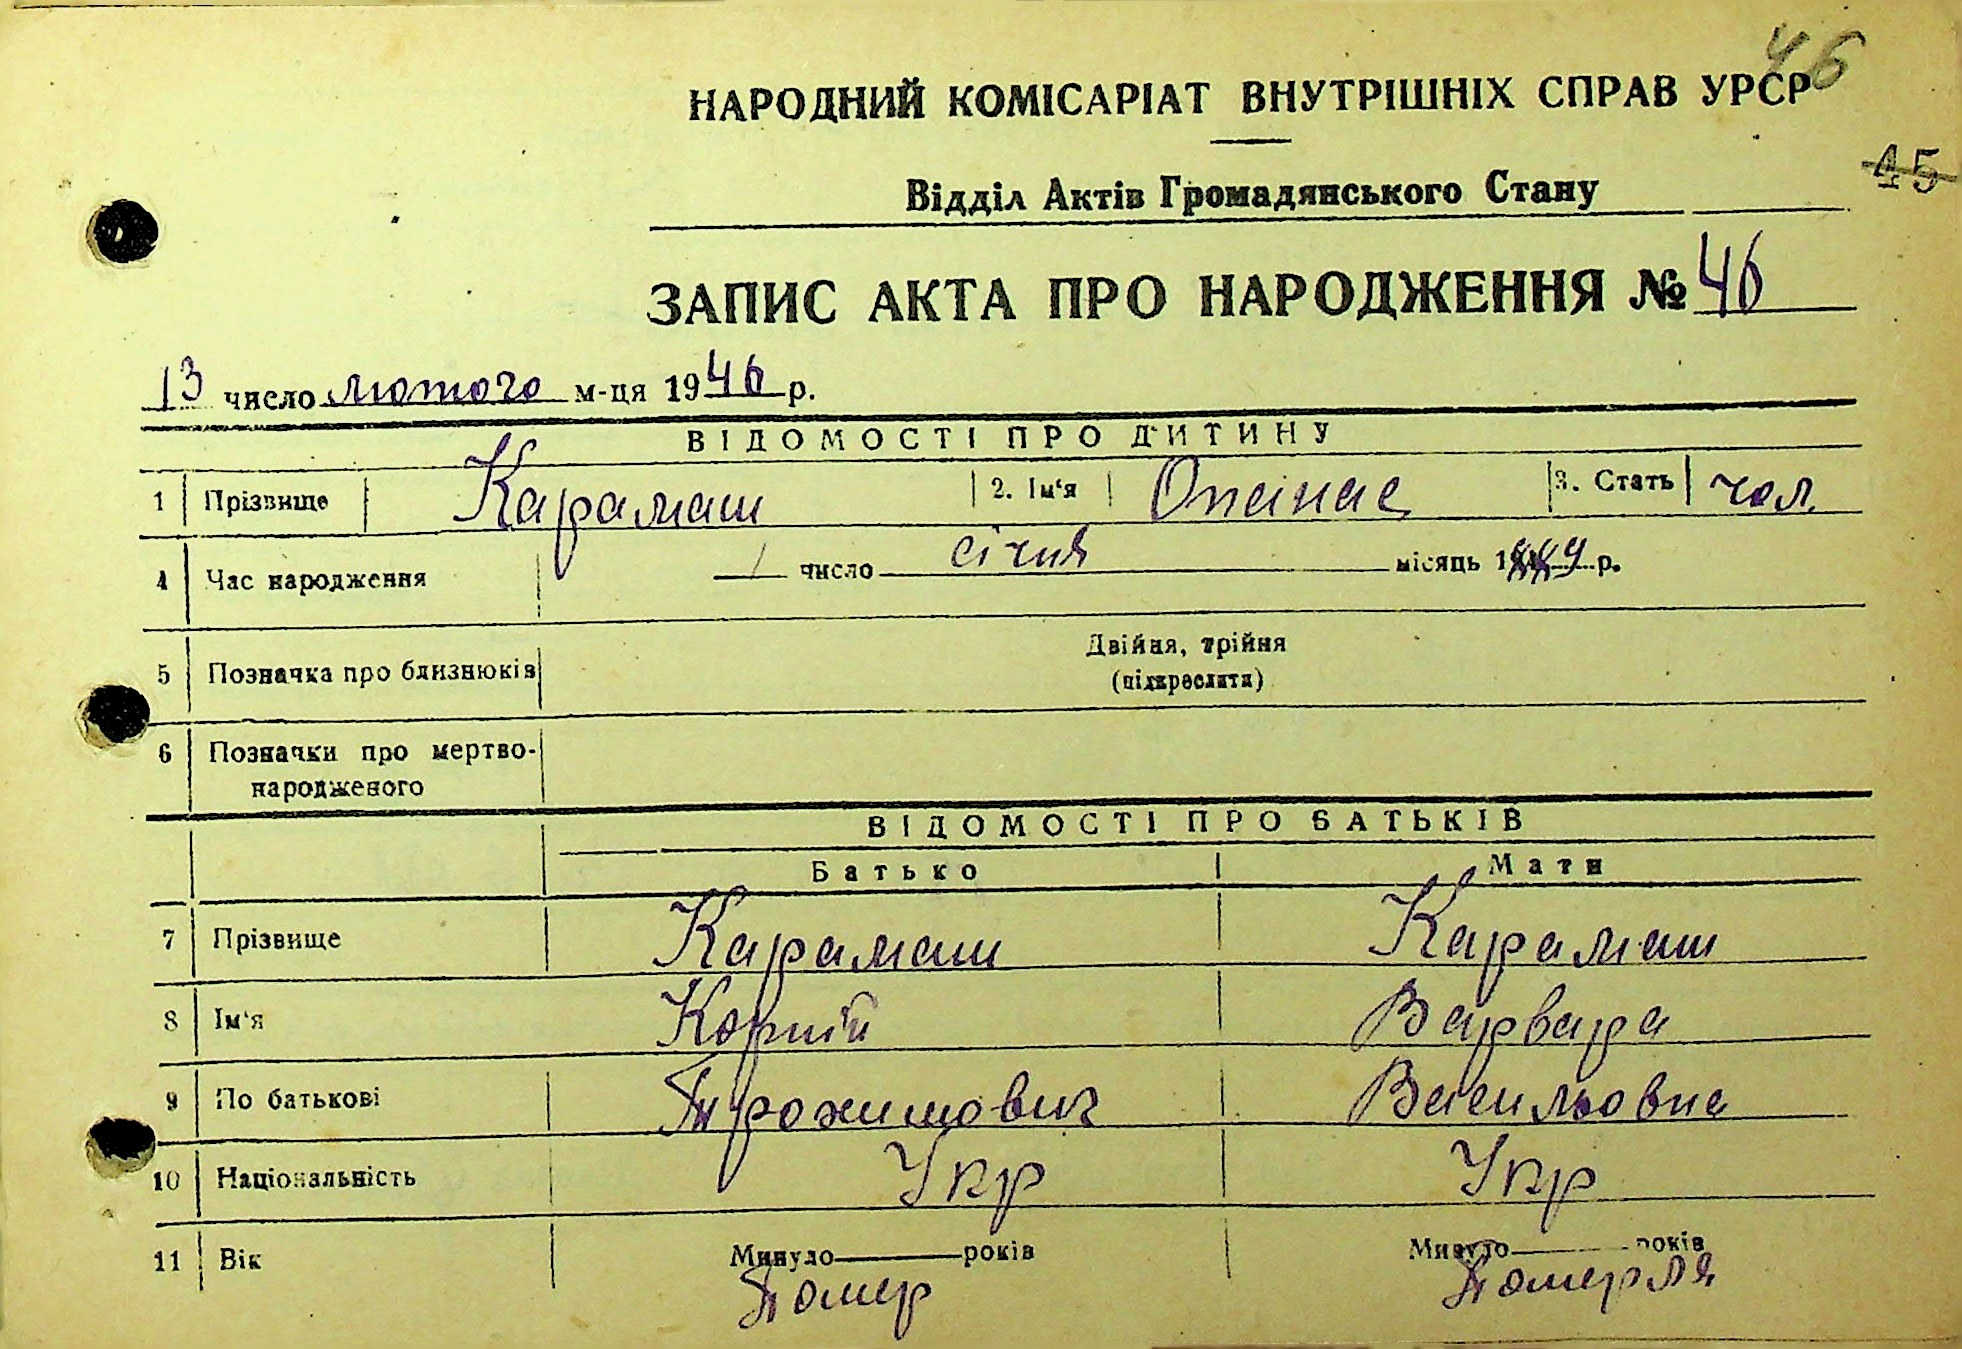 46
НАРОДНИЙ КОМІСАРІАТ ВНУТРІШНІХ СПРАВ УРСР
45
Відділ Актів Громадянського Стану
ЗАПИС АКТА ПРО НАРОДЖЕННЯ № 46
13 число лютого м-ця 1946 р.
ВІДОМОСТІ ПРО ДИТИНУ
1 Прізвище Карамаш 2. Ім‘я Опанас 3. Стать чол.
4 Час народження 1 число січня місяць р.
5 Позначка про близнюків Двійня, трійня
(підкреслити)
6 Позначки про мертво-
народженого
ВІДОМОСТІ ПРО БАТЬКІВ
Батько Мати
7 Прізвище Карамаш Карамаш
8 Ім‘я Корній Варвара
9 По батькові Трохимович Васильовна
10 Національність Укр Укр
11 Вік Минуло років Минуло років
Помер Померля